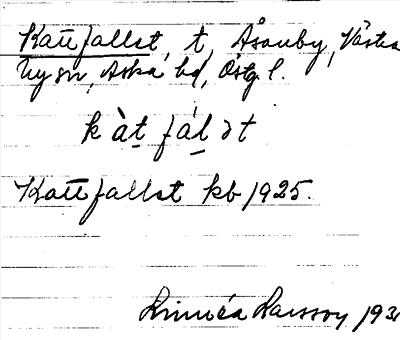 Kattfallet, t, Åsouby, Västra
Ny sn, Aska hd, Östg. l.
kàt fál ət
Kattfallet kb 1925.
Linnéa Larsson 193